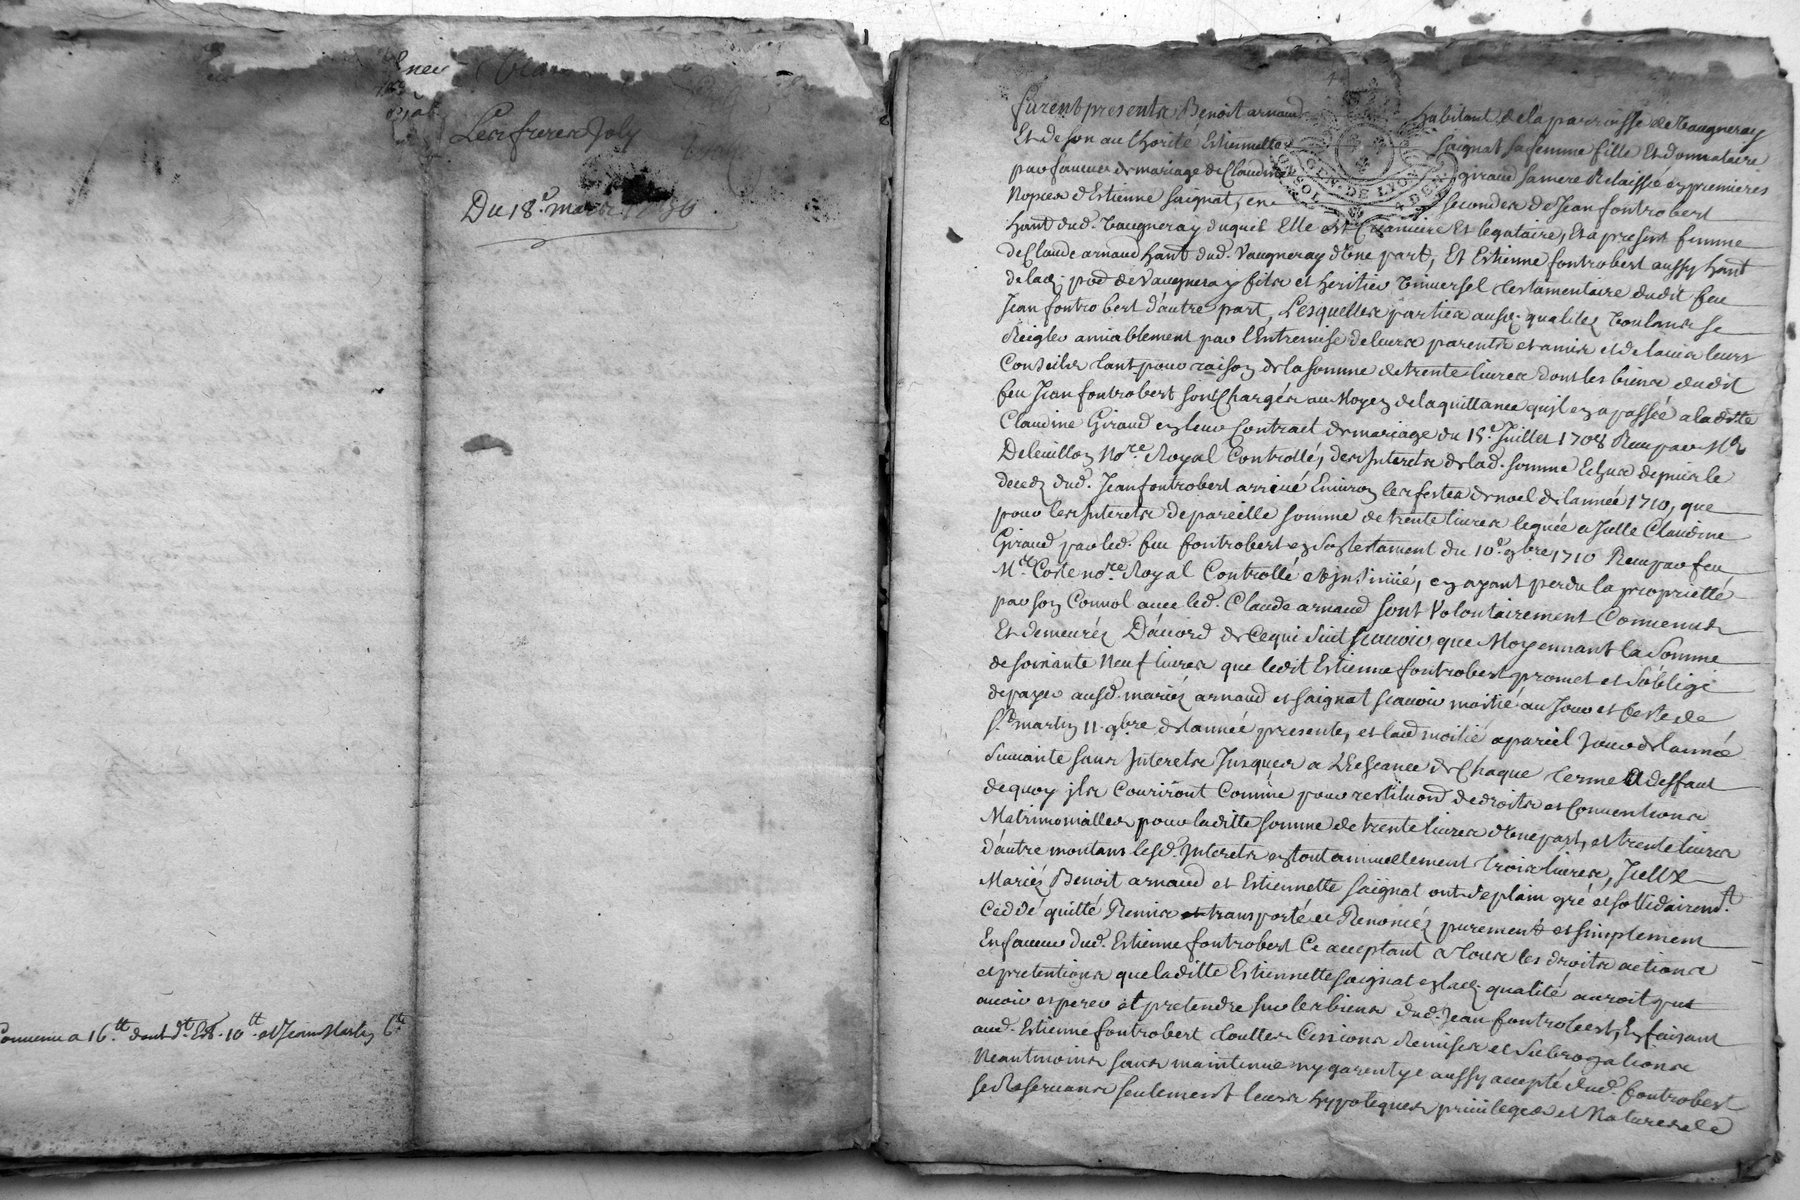 Les freres Joly
Du 18e. mars 1736.
Convenu a 16 tt. dont dt. Est. 10 tt. et Jean Marlez 6 tt.
furent presents Benoit arnaud habitant de la parroisse de Vaugneray
Et de son authorité Estiennette Saignat sa femme fille Et donnataire
par faveur de mariage de Claudine giraud sa mere Relaissée en premieres
Nopces d'Estienne Saignat, en secondes de Jean fontrobert
hant dud. Vaugneray duquel Elle est Creanciere Et legataire, Et a present femme
de Claude arnaud hant dud. Vaugneray d'Une part, Et Estienne fontrobert aussy hant
de lad. psse de Vaugneray fils et heritier Universel testamentaire dudit feu
Jean fontrobert d'autre part, Lesquelles parties ausd. qualités Voulans se
Reigler amiablement par l'Entremise de leurs parents et amis et de l'avis leurs
Conseils tant pour raison de la somme de trente livres dont les biens dudit
feu Jean fontrobert sont Chargés au Moyen de la quittance qu'il en a passée a laditte
Claudine Giraud en leur Contract de mariage du 15e. Juillet 1708 Receu par Me
Deleuillon Nore. Royal Controllé, des Interets de lad. somme Echus depuis le
deceds dud. Jean fontrobert arrivé Environ les festes de noel de l'année 1710, que
pour les Interets de pareille somme de trente livres leguée a Icelle Claudine
Giraud par led. feu fontrobert en son testament du 10e. xbre 1710 Receu par feu
Me. Coste nore. Royal Controllé et insinué, en ayant perdu la proprietté
par son Convol avec led. Claude arnaud sont Volontairement Convenus
Et demeurés D'accord de Ce qui Suit scavoir, que Moyennant la Somme
de soixante Neuf livres que ledit Estienne fontrobert promet et S'oblige
de payer ausd. mariés arnaud et saignat scavoir moitié au Jour et feste de
St. martin 11. 9bre. de l'année presente, et l'aud moitié a pareil Jour de l'année
Suivante sans Interets Jusques a L'Echeance de Chaque terme A deffaut
de quoy ils Couriront Comme pour restitution de droits et Conventions
Matrimonialles pour laditte somme de trente livres d'Une part, et trente livres
d'autre montans lesd. Interets en tout annuellement trois livres, Iceux
Mariés Benoit arnaud et Estiennette Saignat ont de plain gré et sollidairemt.
Ceddé quitté Remis et transporté et Renoncés purement et simplement
En faveur dud. Estienne fontrobert Ce acceptant a tous les droits actions
et pretentions que laditte Estiennette Saignat en lad. qualité auroit peut
avoir esperer et pretendre sur les biens dud. Jean fontrobert, En faisant
aud. Estienne fontrobert touttes Cessions Remises et Subrogations
Neantmoins sans maintenue ny garentye aussy accepté dud. fontrobert
se Reservans seulement leurs hypoteques privileges et Nature de